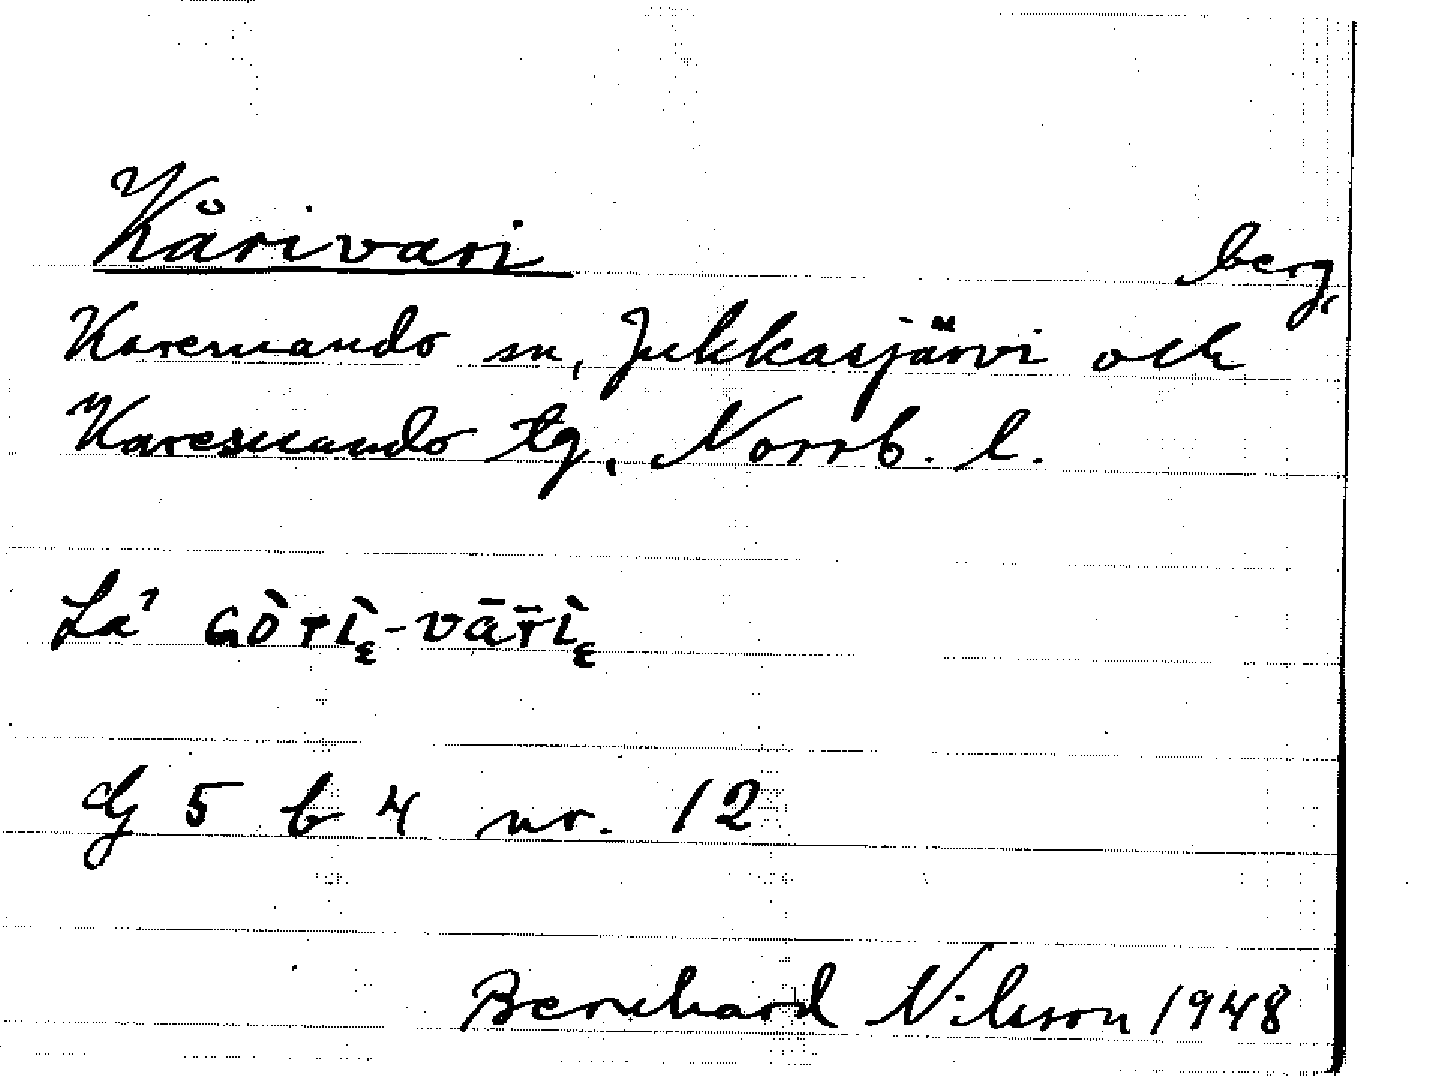 Kårivari berg,
Karesuando sn, Jukkasjärvi och
Karesuando tg, Norrb. l.
La'
G 5 b 4 nr. 12
Bernhard Nilsson 1948